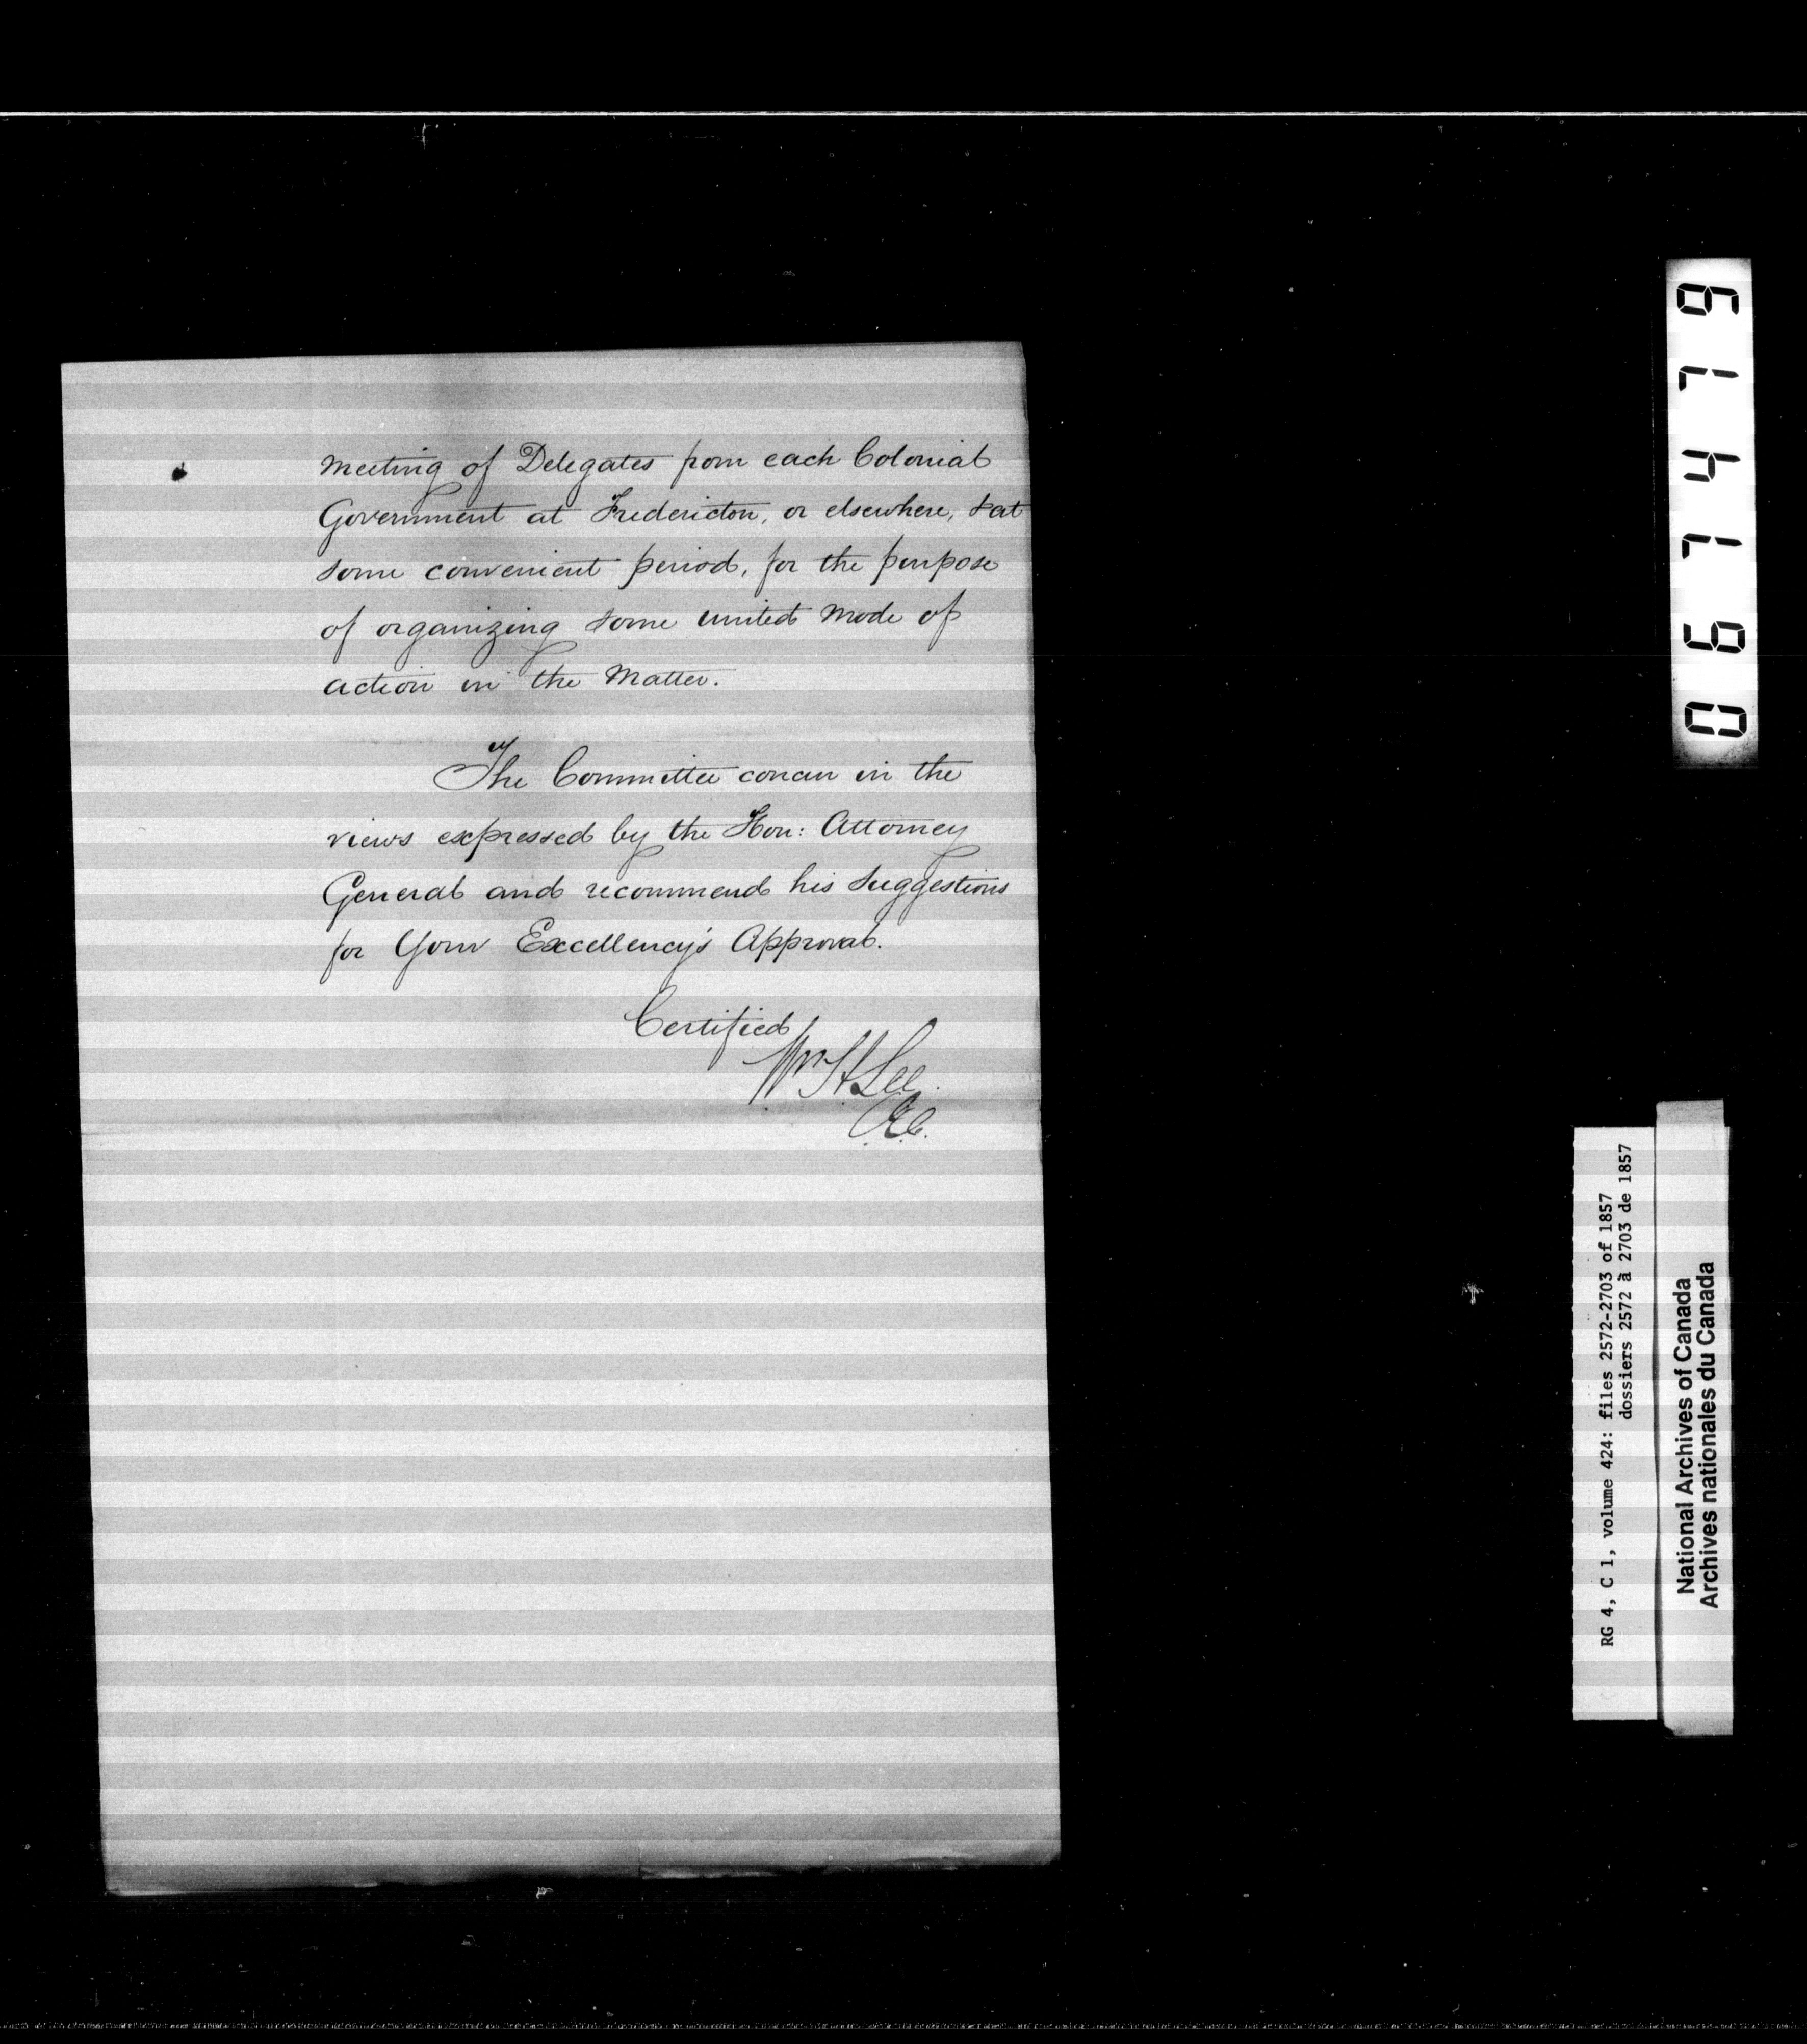 meeting of Delegates from each Colonial
Government at Fredericton, or elsewhere, & at
some convenient period, for the purpose
of organizing some united mode of
action in the Matter.
The Committee concur in the
views expressed by the Hon: Attorney
General and recommend his suggestions
for Your Excellency's Approval.
Certified
Wm H Lee
C.E.C.
067479
RG 4, C 1, volume 424: files 2572-2703 of 1857
dossiers 2572 à 2703 de 1857
National Archives of Canada
Archives nationales du Canada